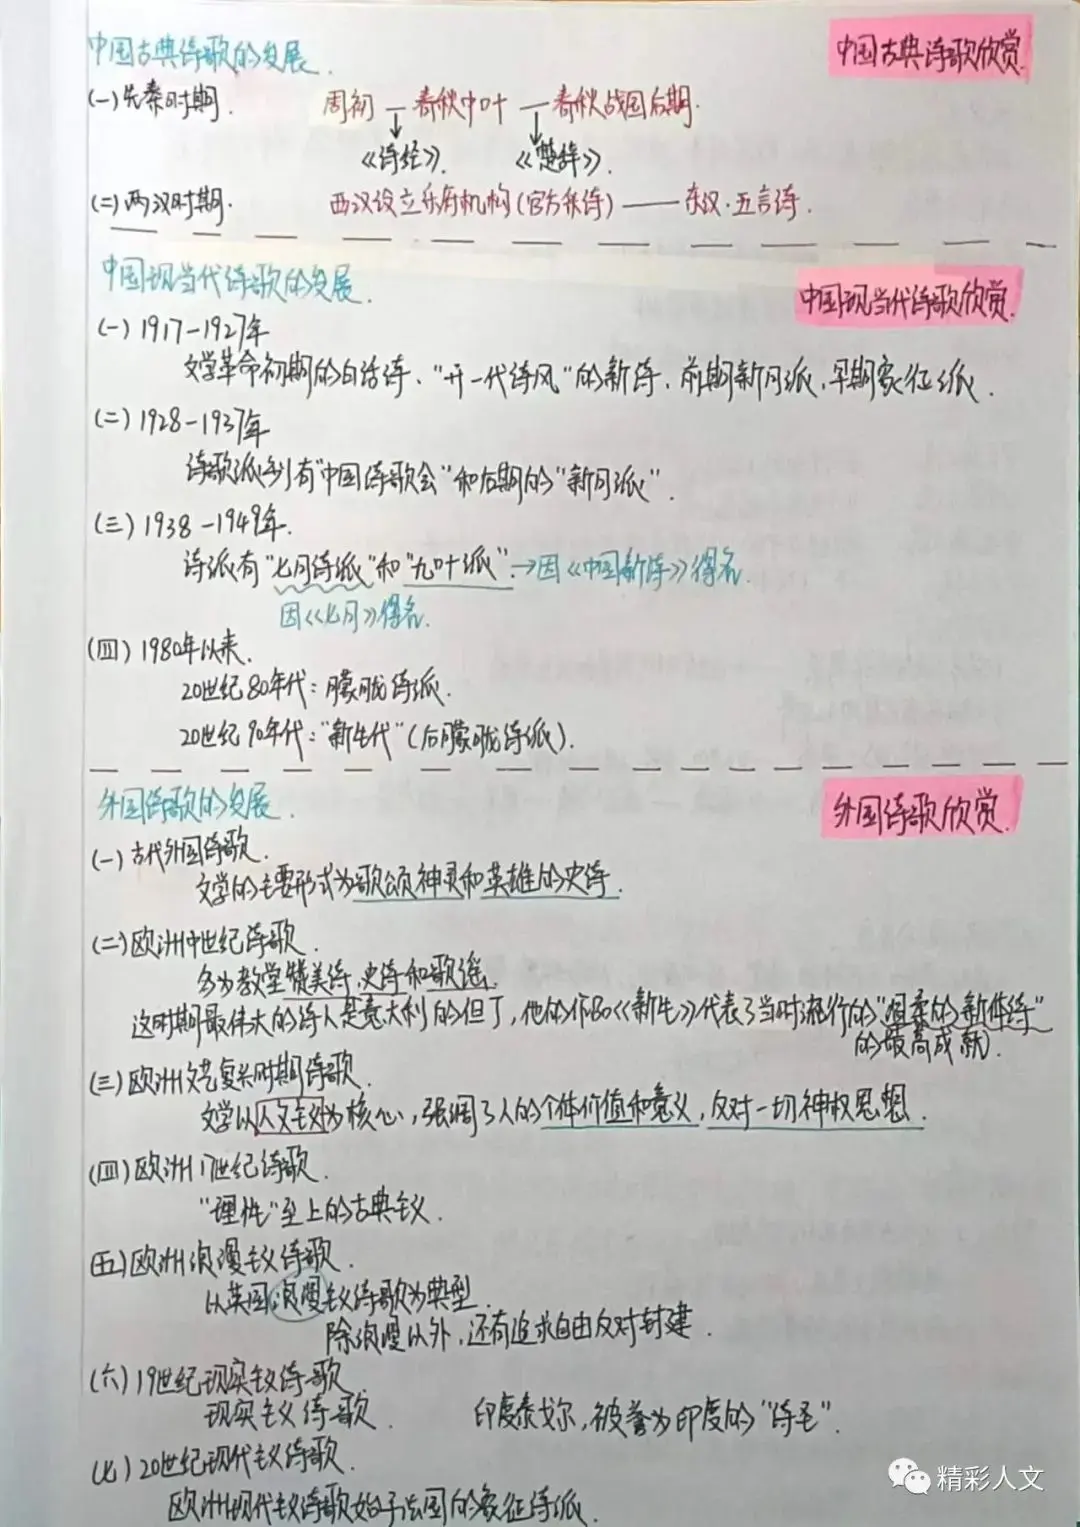 中国古典诗歌的发展.
中国古典诗歌欣赏.
(一)先秦时期. 周初 — 春秋中叶 — 春秋战国后期.
《诗经》. 《楚辞》.
(二)两汉时期. 西汉设立乐府机构(官方采诗) —— 东汉·五言诗.
中国现当代诗歌的发展.
中国现当代诗歌欣赏.
(一)1917-1927年
文学革命初期的白话诗、"开一代诗风"的新诗、前期新月派、早期象征派.
(二)1928-1937年
诗歌派别有"中国诗歌会"和后期的"新月派".
(三)1938-1949年.
诗派有"七月诗派"和"九叶派".→因《中国新诗》得名.
因《七月》得名.
(四)1980年以来.
20世纪80年代:朦胧诗派.
20世纪90年代:"新生代"(后朦胧诗派).
外国诗歌的发展.
外国诗歌欣赏.
(一)古代外国诗歌.
文学的主要形式为歌颂神灵和英雄的史诗.
(二)欧洲中世纪诗歌.
多为教堂赞美诗、史诗和歌谣.
这时期最伟大的诗人是意大利的但丁,他的作品《新生》代表了当时流行的"温柔的新体诗"
的最高成就.
(三)欧洲文艺复兴时期诗歌.
文学以人文主义为核心,强调了人的个体价值和意义,反对一切神权思想.
(四)欧洲17世纪诗歌.
"理性"至上的古典主义.
(五)欧洲浪漫主义诗歌.
以英国浪漫主义诗歌为典型.
除浪漫以外,还有追求自由反对封建.
(六)19世纪现实主义诗歌.
现实主义诗歌. 印度泰戈尔,被誉为印度的"诗圣".
(七)20世纪现代主义诗歌.
欧洲现代主义诗歌始于法国的象征诗派.
精彩人文